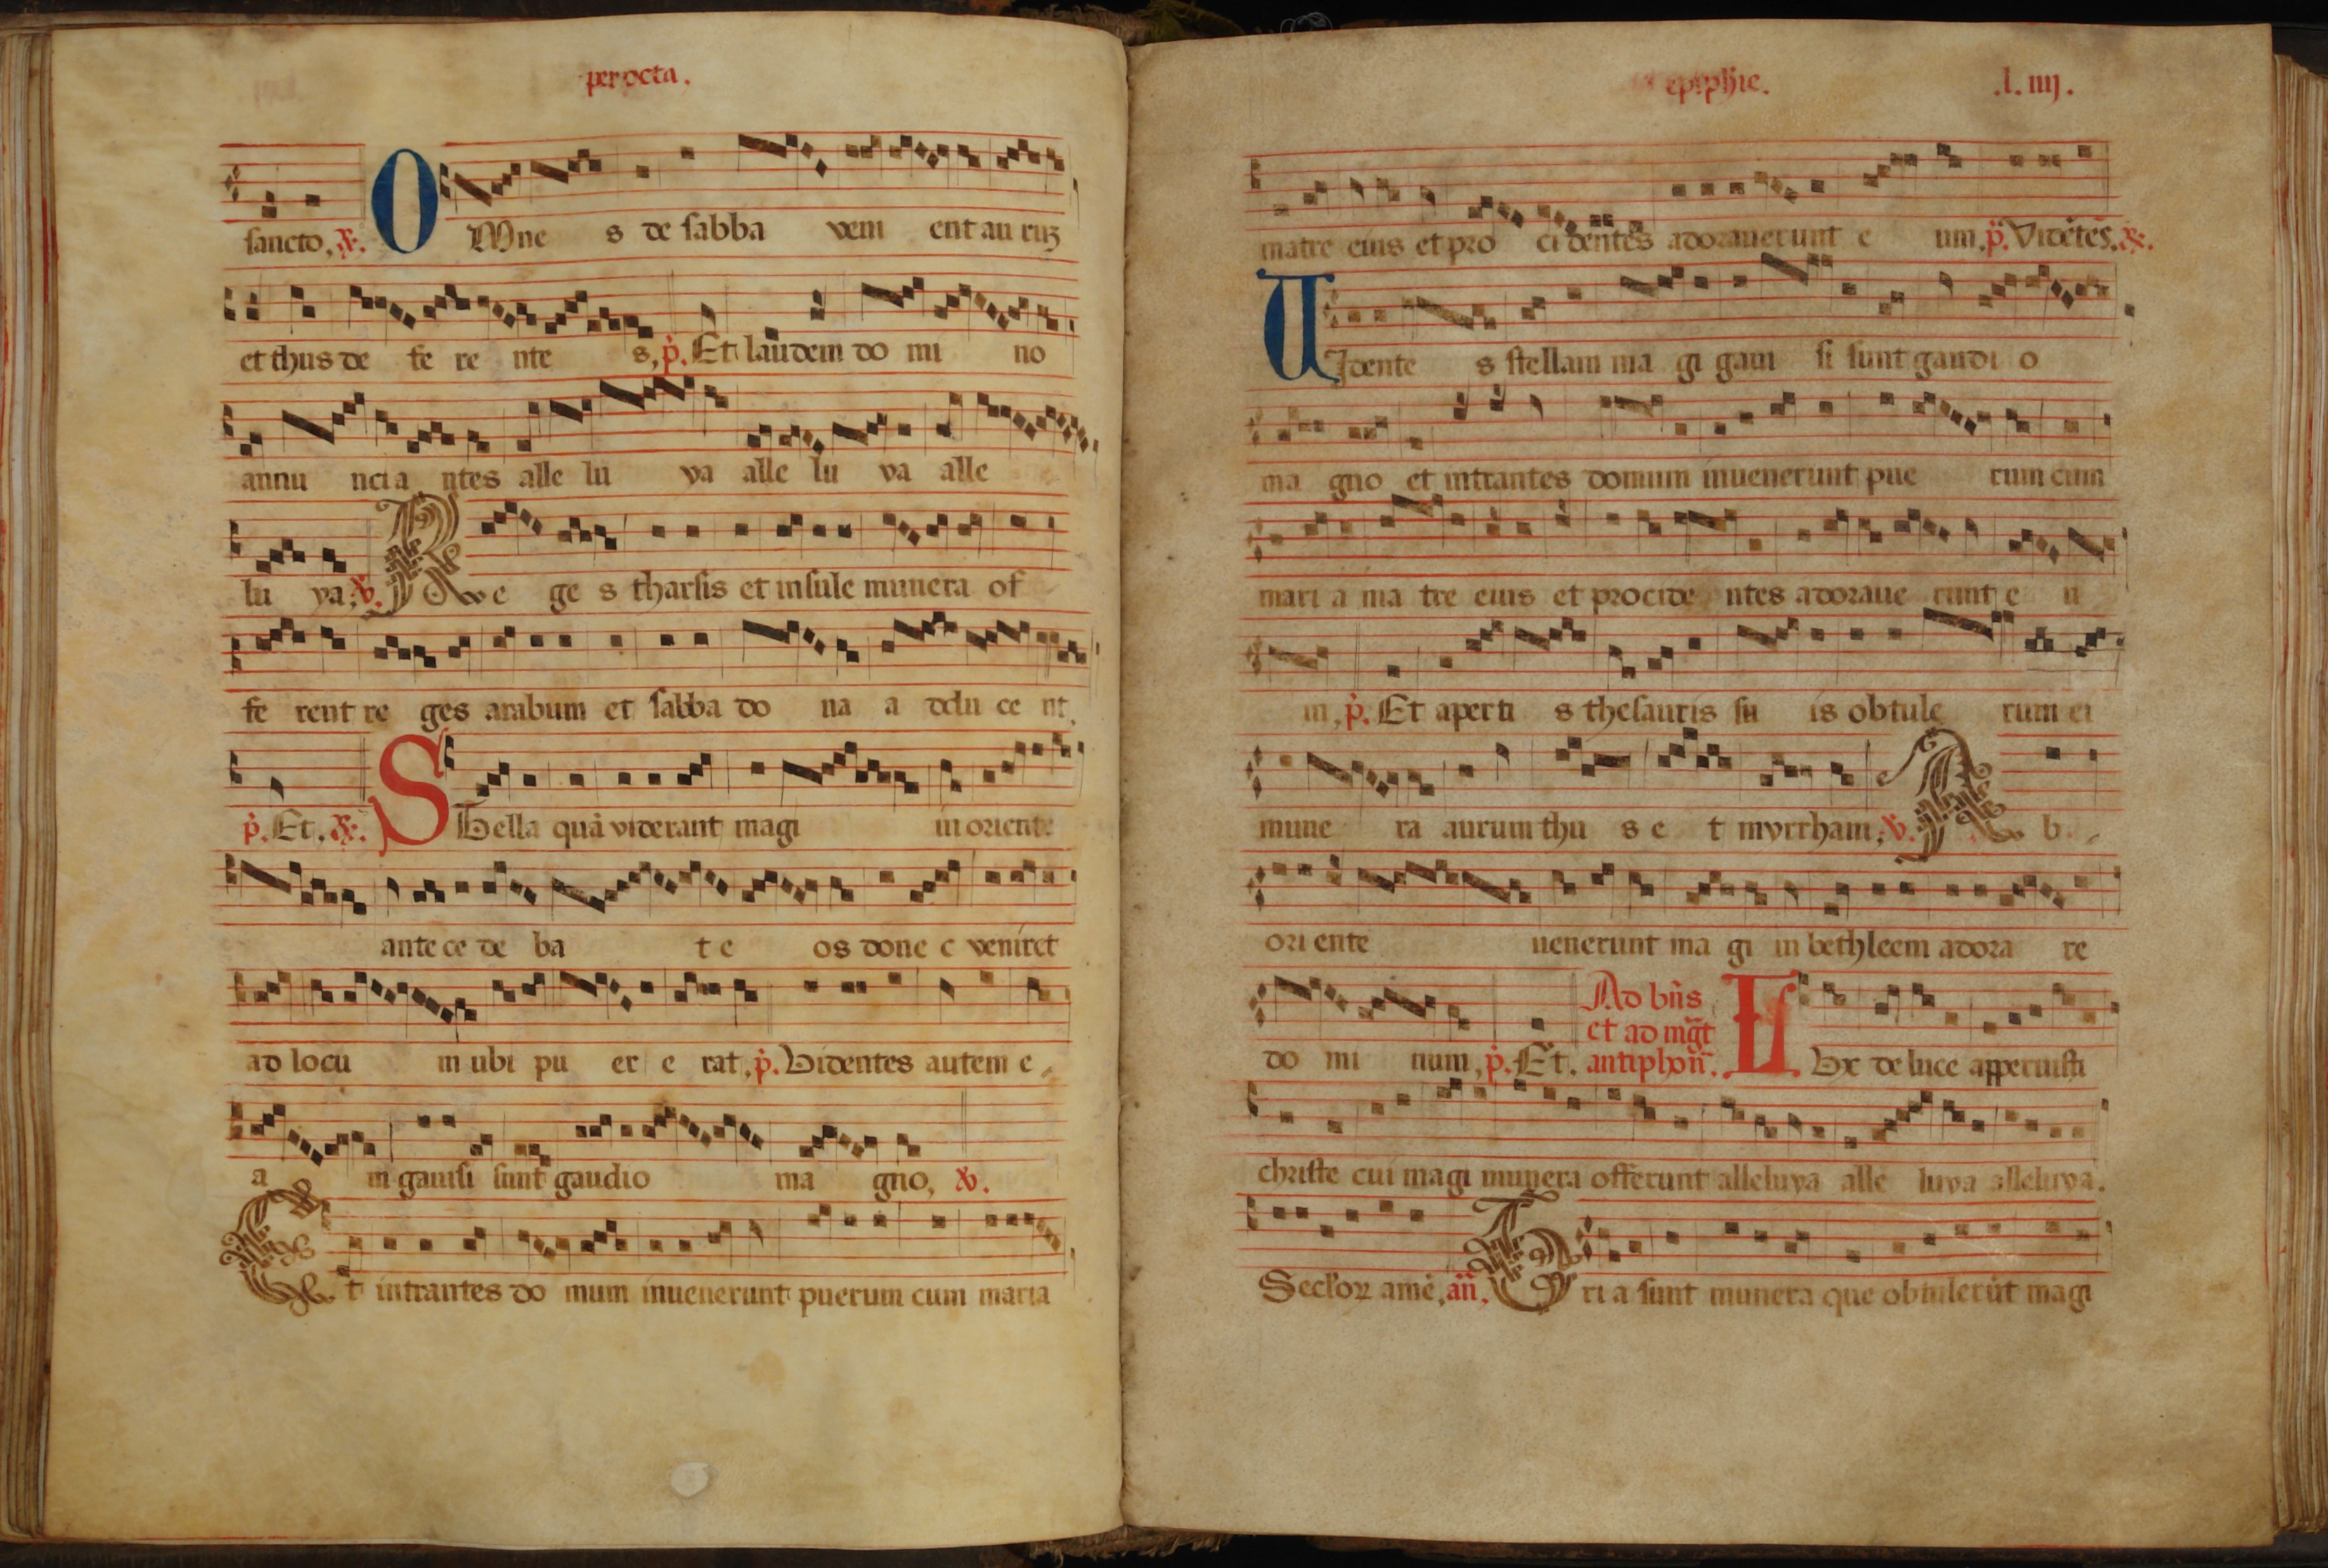 per octa.
sancto. ℟. OMne s de sabba veni ent au ruʒ
et thus de fe re nte s, p̓. Et laudem do mi no
annu ncia ntes alle lu ya alle lu ya alle
lu ya. ℣. Re ge s tharsis et insule munera of
fe rent re ges arabum et sabba do na a ddu ce nt.
p̓. Et. ℟. Stella quā viderant magi in oriente
ante ce de ba t e os done c veniret
ad locu m ubi pu er e rat, p̓. Videntes autem e
a m gauisi sunt gaudio ma gno, ℣.
Et intrantes do mum inuenerunt puerum cum maria
epiphie. .l. iiij.
matre eius et pro cidentes adorauerunt e um. p̓. Vidētes. ℟.
VIdente s stellam ma gi gaui si sunt gaudi o
ma gno et intrantes domum inuenerunt pue rum cum
mari a ma tre eius et procide ntes adoraue runt e u
m, p̓. Et aperti s thesauris su is obtule runt ei
mune ra aurum thu s e t myrrham, ℣. Ab
ori ente uenerunt ma gi in bethleem adora re
do mi num, p̓. Et. Ad bn̄s
et ad mḡt
antiphon̄. LUx de luce apperuisti
christe cui magi munera offerunt alleluya alle luya alleluya.
Seclor amē, an̄. Tri a sunt munera que obtulerūt magi